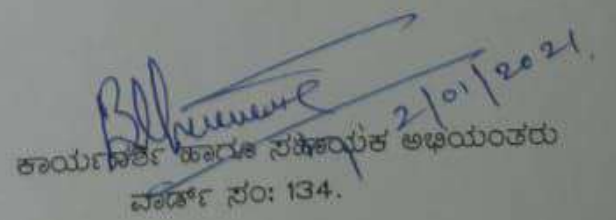 2/01/2021.
ಕಾರ್ಯದರ್ಶಿ ಹಾಗೂ ಸಹಾಯಕ ಅಭಿಯಂತರು
ವಾರ್ಡ್ ಸಂ: 134.